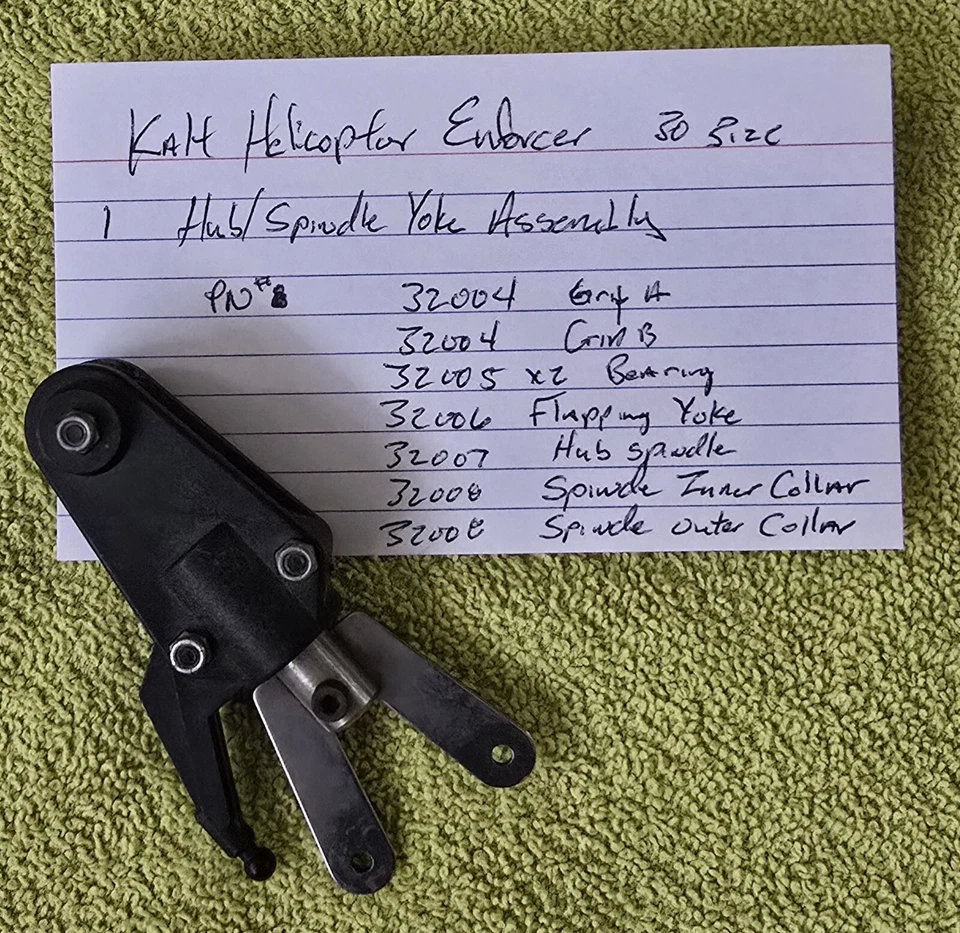 Kalt Helicoptor Enforcer 30 Size
1 Hub/Spindle Yoke Assembly
PN#s 32004 Grip A
32004 Grip B
32005 x2 Bearing
32006 Flapping Yoke
32007 Hub spindle
32008 Spindle Inner Collar
32008 Spindle outer Collar